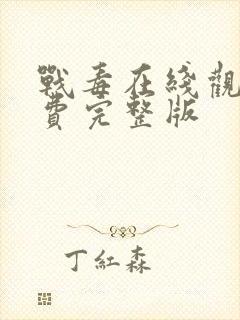 戰毒在綫觀
費完整版
丁紅森